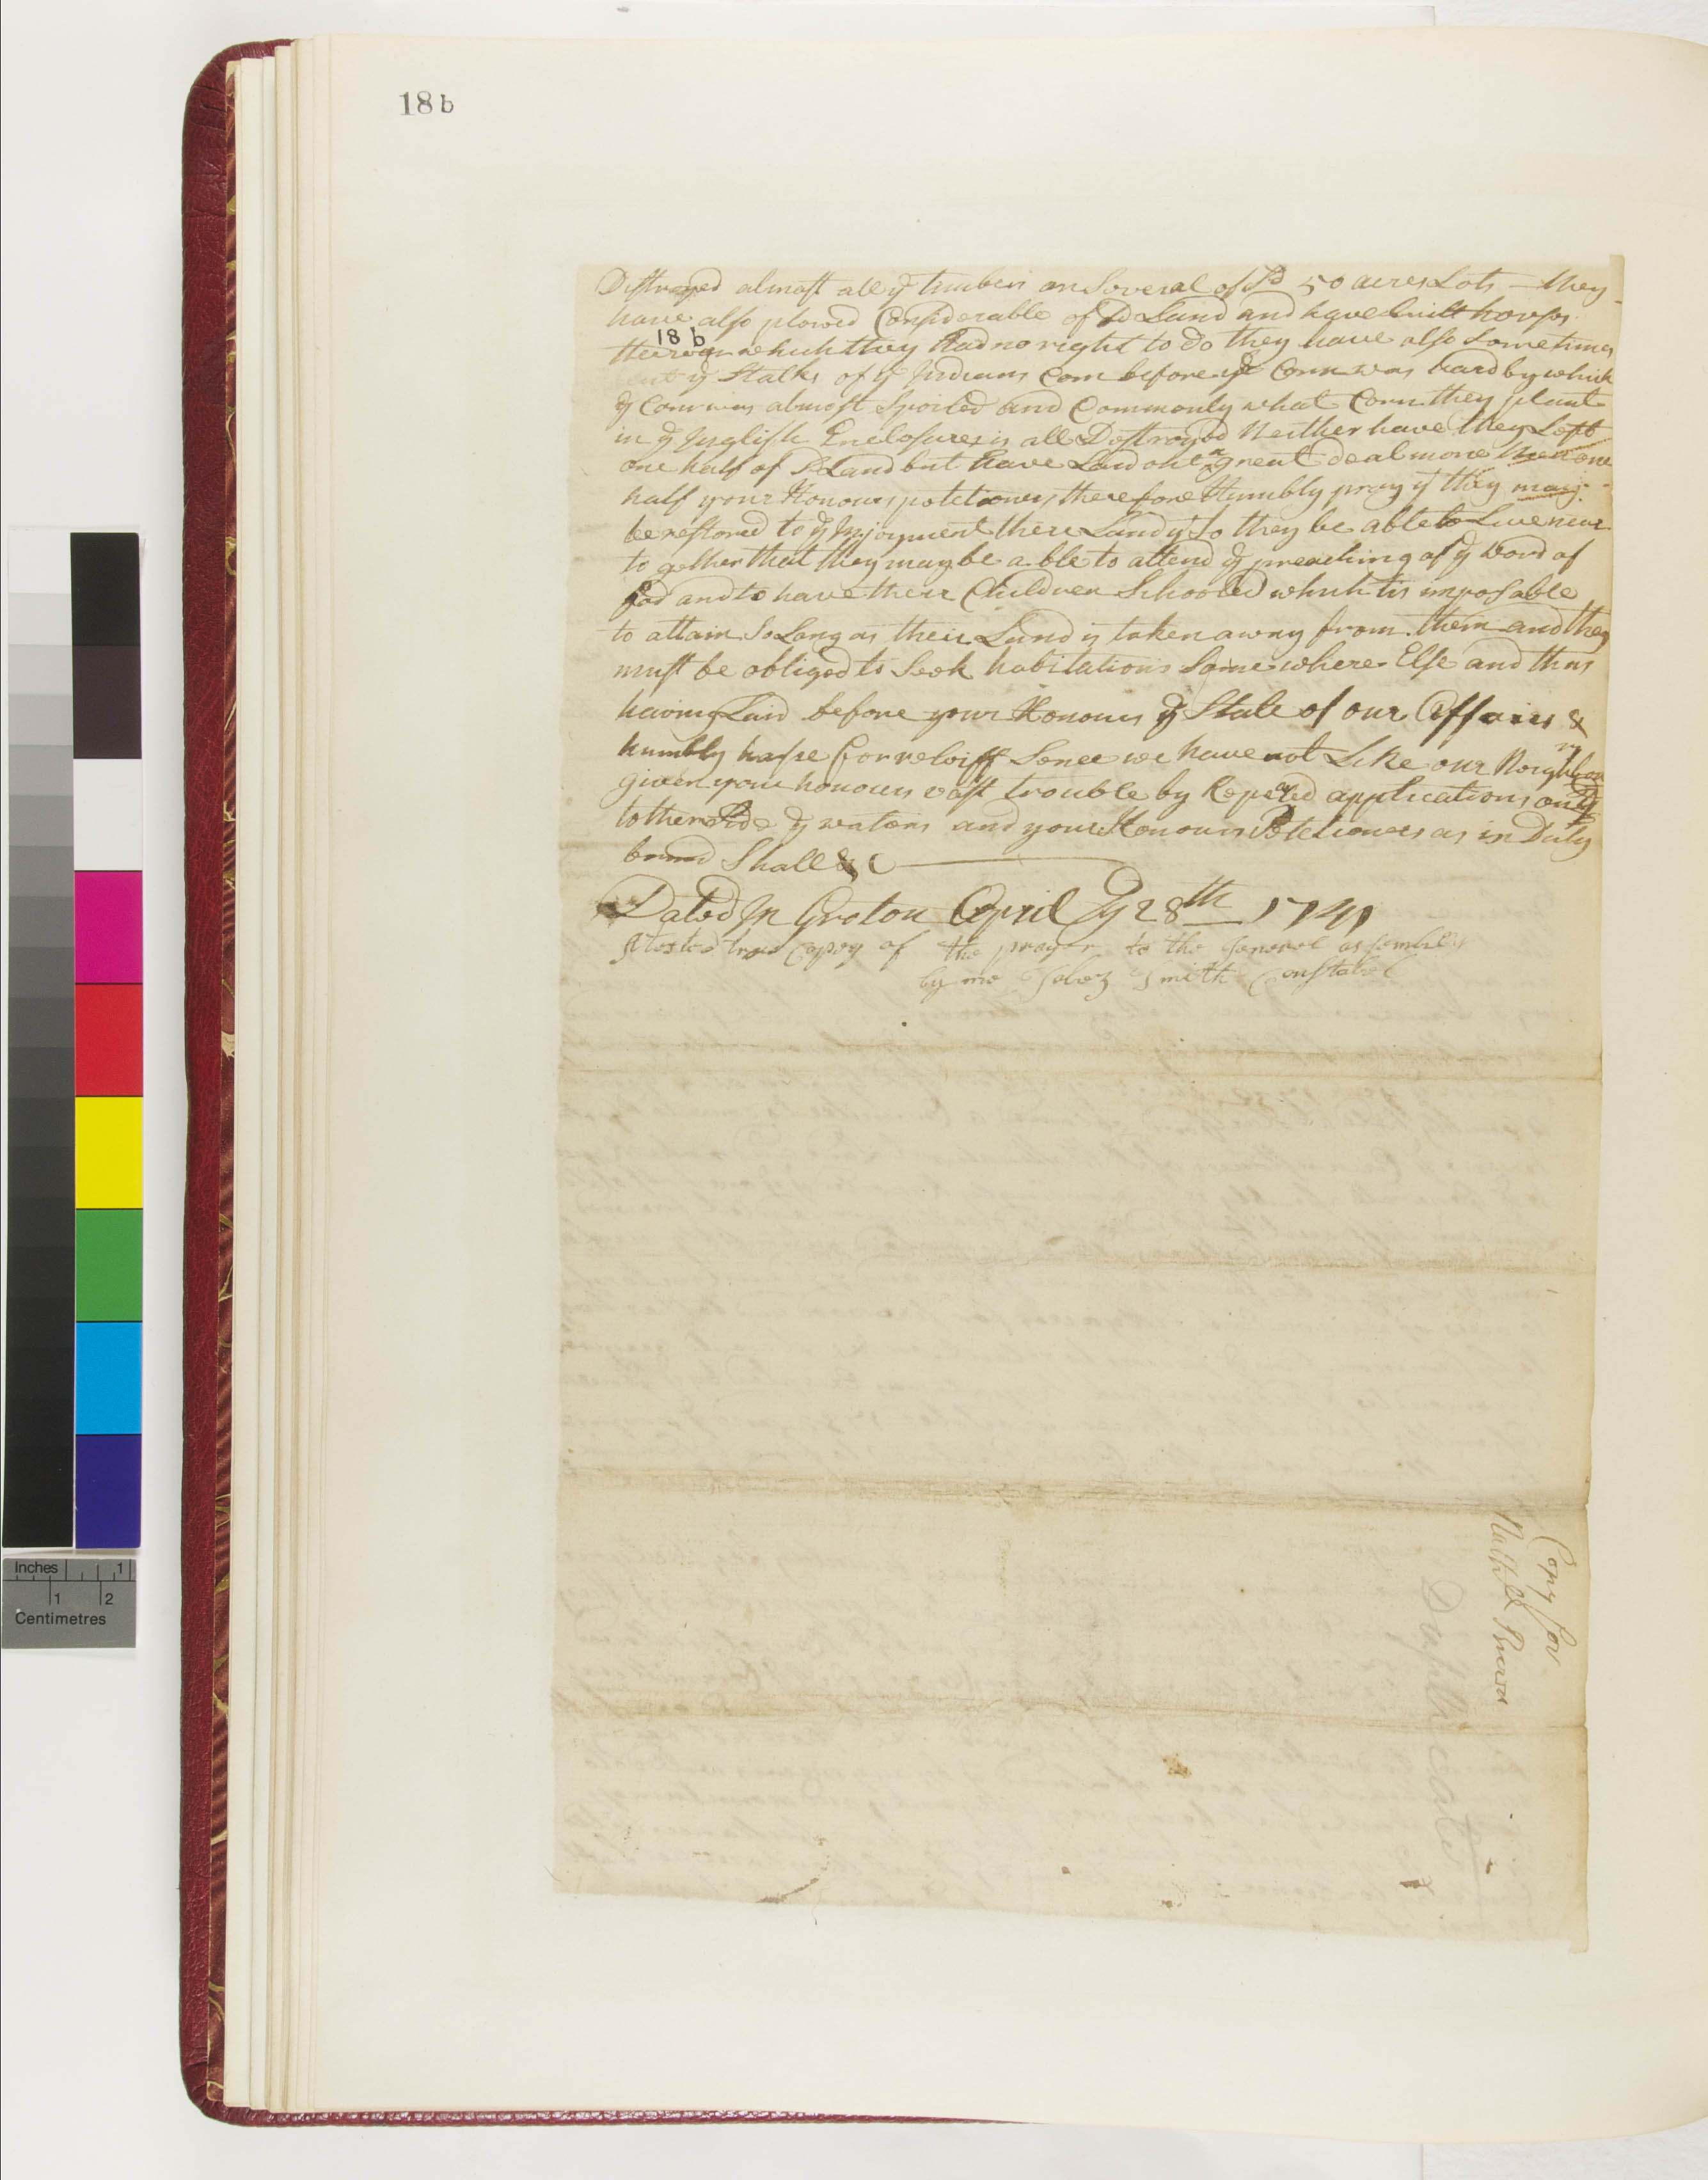 18 b
Distroyed almost all ye timber on Several of Sd 50 acres Lots — they
have also plowed Considerable of Sd Land and have built houses
18 b
thereon which they had no right to do they have also Sometimes
cut ye Stalks of ye Indians Corn before ye Corn was hard by which
ye Corn was almost Spoiled and Commonly what Corn they plant
in ye Inglish Enclosures is all Destroyed Neither have they Left
one half of Sd Land but have Laid out a great deal more then one
half your Honours petetioners therefore Humbly pray yt they may
be restored to ye Injoyment there Land yt So they be able to Live near
to gether that they may be able to attend ye preaching of ye Word of
God and to have their Children Schooled which tis imposable
to attain So Long as their Land is taken away from them and they
must be obliged to Seek habitations Some where Else and thus
having Laid before your Honours ye State of our Affairs &
humbly hope for releiff Sence we have not Like our Neighbours
given your honours vast trouble by Repeated applications on ye
tother Side ye waters and your Honours Petetioners as in Duty
bound Shall &c
Dated In Groton April ye 28th 1741
Atested true Copey of the prayer to the generel assembley
by me Jabez Smith Constabel
Copy for
Nathll Brown
Duplicate
Inches 1
1 2
Centimetres